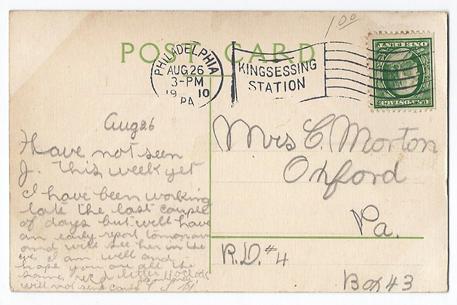 1.00
POST CARD
PHILADELPHIA
AUG 26
3-PM
1910
PA
KINGSESSING
STATION
Aug 26
Have not seen
J. this week yet
I have been working
late the last couple
of days but will have
an early report tomorrow
and will see her in the
eve. I am well and
hope you are all the
same.
letter
will not send cards
Mrs C. Morton
Oxford
Pa.
R.D. #4
Box 43